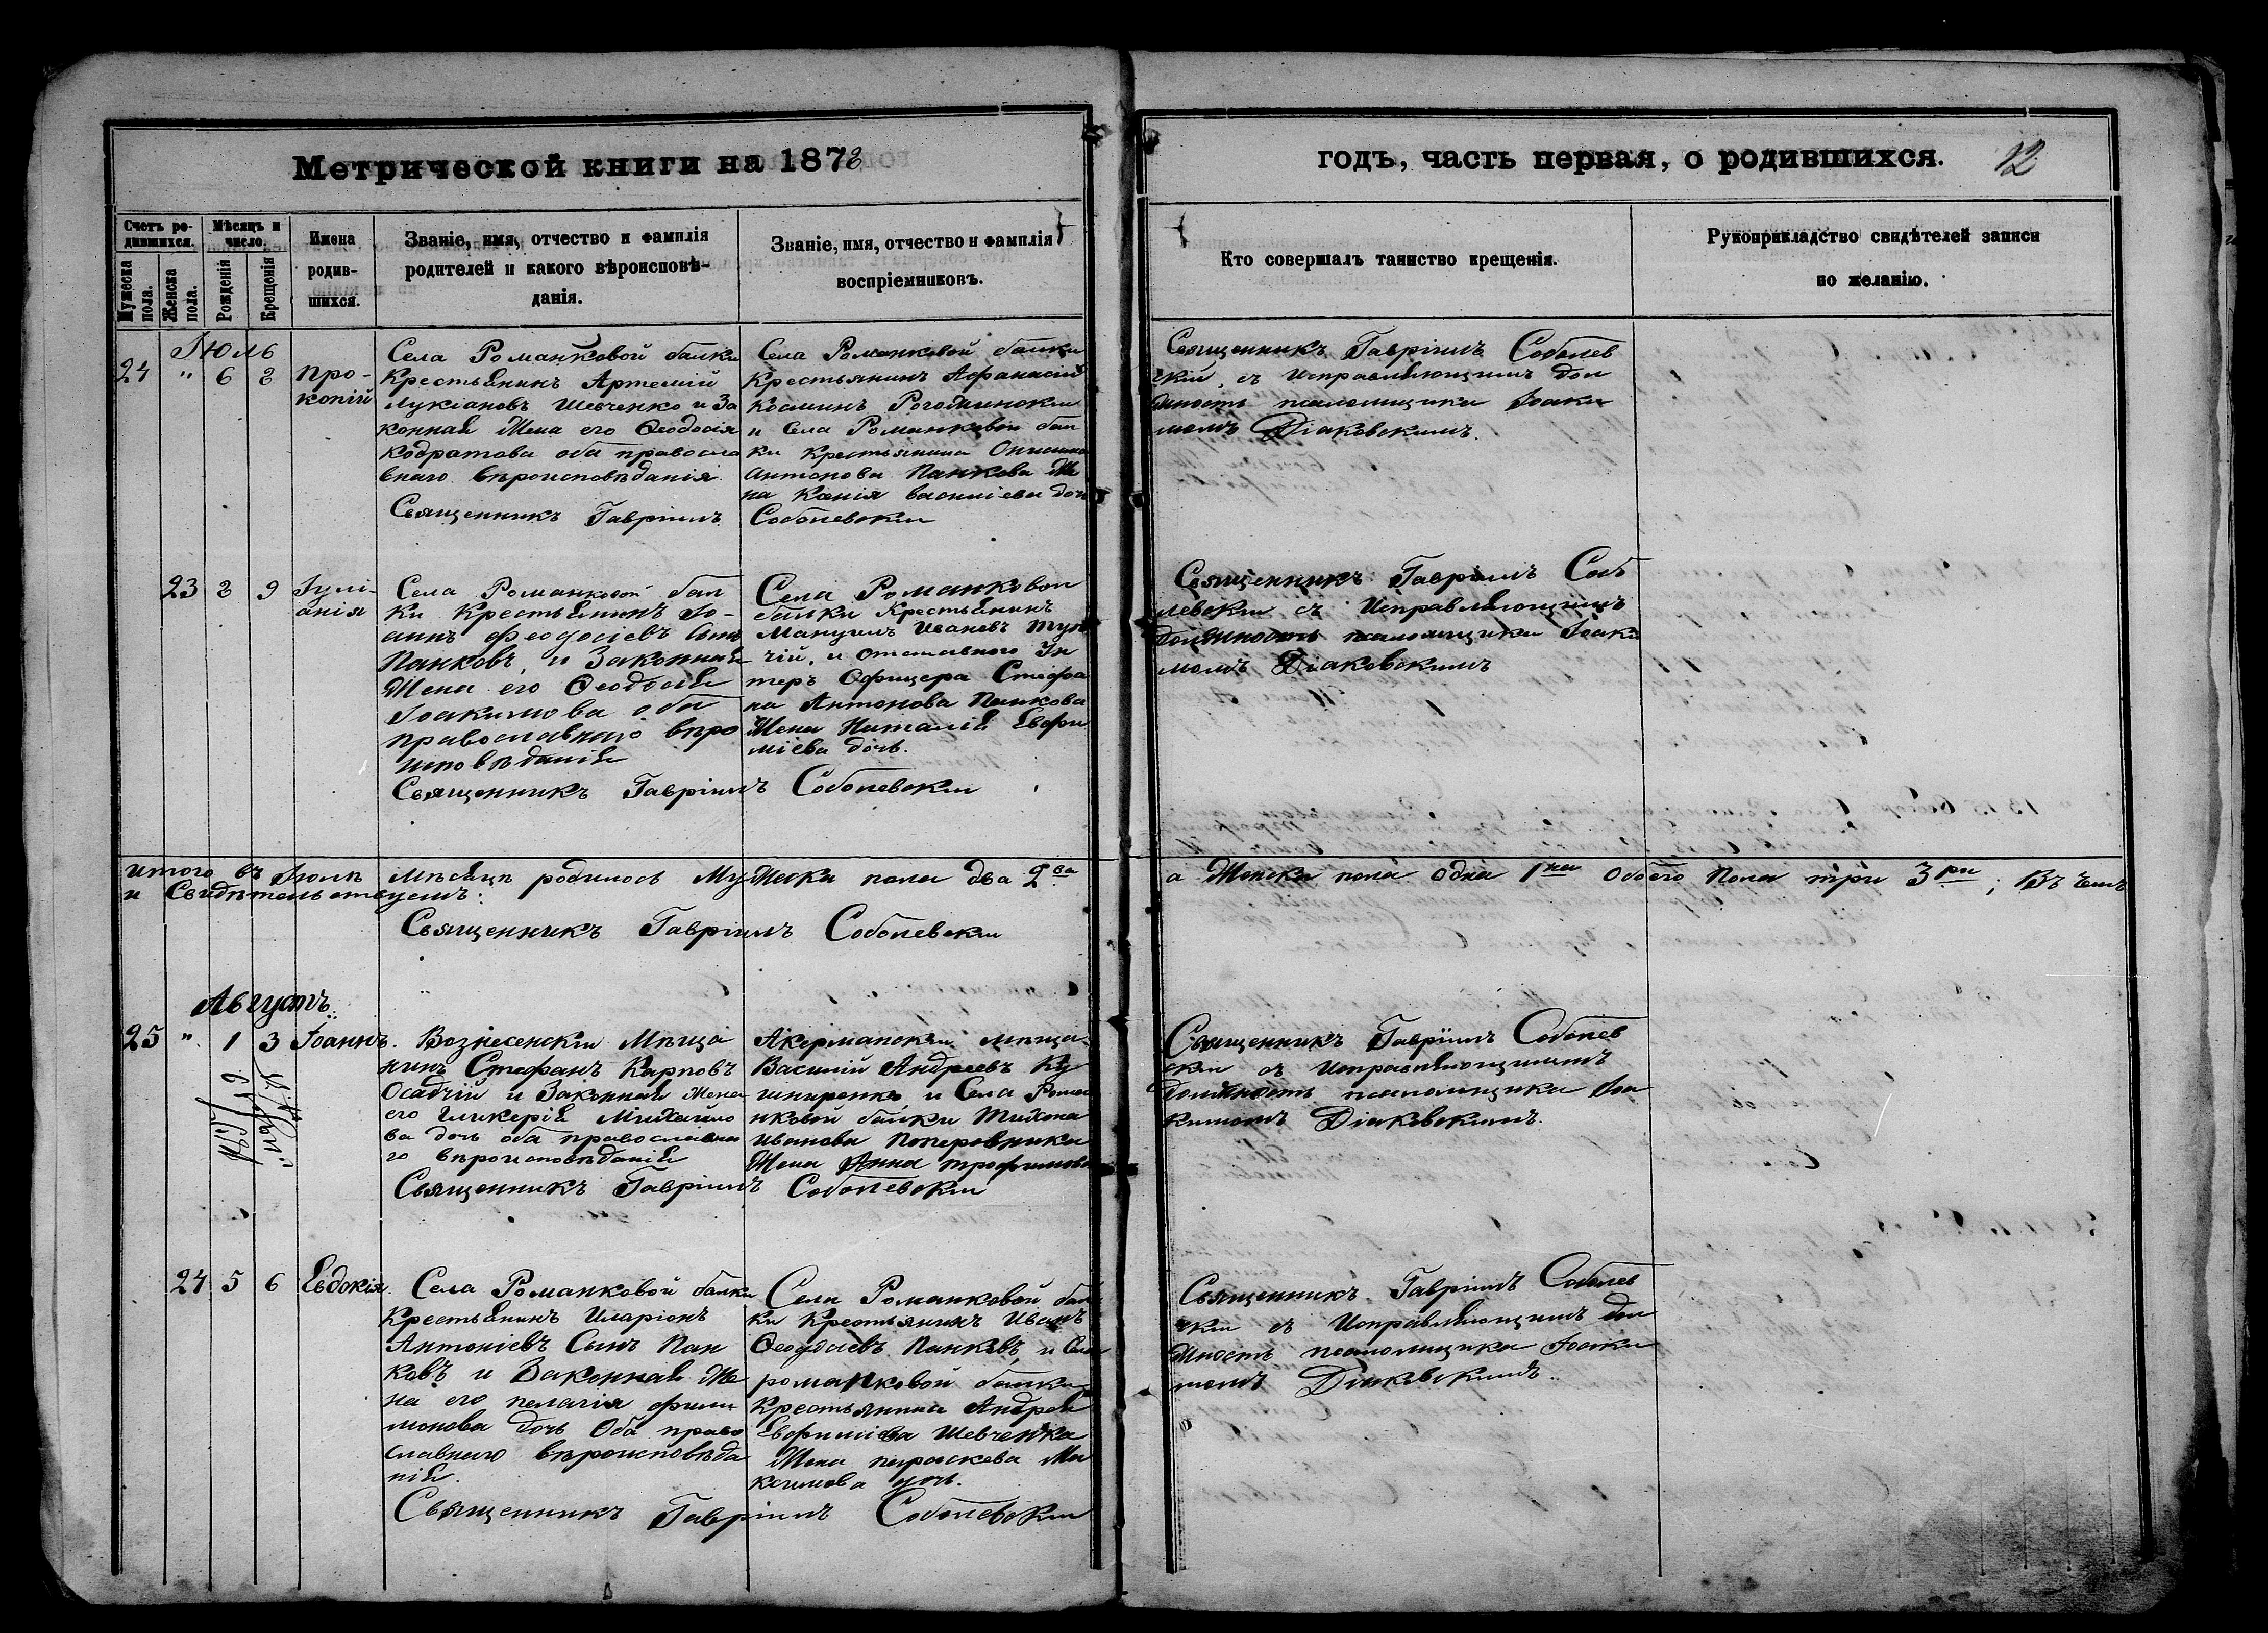 Метрической книги на 1873
годъ, часть первая, о родившихся.
12
Счетъ ро-
дившихся.
Мужеска
пола.
Женска
пола.
Мѣсяцъ и
число.
Рожденія
Крещенія
Имена
родив-
шихся.
Званіе, имя, отчество и фамилія
родителей и какого вѣроисповѣ-
данія.
Званіе, имя, отчество и фамилія
воспріемниковъ.
Кто совершалъ таинство крещенія.
Рукоприкладство свидѣтелей записи
по желанію.
Іюль
24 " 6 8
Про-
копій
Села Романковой балки
Крестьянинъ Артемій
Лукіановъ Шевченко и За
конная Жена его Ѳеодосія
Кодратова оба правосла
внаго вѣроисповѣданія.
Села Романковой балки
Крестьянинъ Афанасій
Косминъ
и Села Романковой бал
ки Крестьянина Онисима
Антонова Панкова Же
на Ксенія Василіева дочь
Священникъ Гавріилъ Соболевскій
Священникъ Гавріилъ Соболев
скій, съ Исправляющимъ дол
жность псаломщика Іоаки
момъ Діаковскимъ.
23 8 9
Іулі-
анія
Села Романковой бал
ки Крестьянинъ Іо-
аннъ Феодосіевъ Сынъ
Панковъ, и Законная
Жена его Ѳеодосія
Іоакимова оба
православнаго вѣро
исповѣданія
Села Романковой
балки Крестьянинъ
Мануилъ Ивановъ
чій, и отставного Ун
теръ Офицера Стефа
на Антонова Панкова
Жена Наталія Евфи
міева дочь.
Священникъ Гавріилъ Соболевскій
Священникъ Гавріилъ Собо
левскій съ Исправляющимъ
должность псаломщика Іоаки
момъ Діаковскимъ
итого въ Іюлѣ Мѣсяцѣ родилось Мужеска пола два 2ва а Женска пола одна 1на Обоего Пола три 3ри; Въ чемъ
и Свидѣтельствуемъ:
Священникъ Гавріилъ Соболевскій
Августъ
25 " 1 3 Іоаннъ.
Вознесенскій Мѣща
нинъ Стефанъ Карповъ
Осадчій и Законная Жена
его Гликерія Михайло
ва дочь оба православна
го вѣроисповѣданія
Акерманскій мѣща-
Василій Андреевъ Ку
шниренко и Села Рома
нковой балки Тихона
Иванова
Жена Анна Трофимова
Священникъ Гавріилъ Соболевскій
Священникъ Гавріилъ Соболев
скій съ Исправляющимъ
должность псаломщика Іоа
кимомъ Діаковскимъ.
24 5 6 Евдокія.
Села Романковой балки
Крестьянинъ Иларіонъ
Антоніевъ Сынъ Пан
ковъ и Законная Же
на его Пелагія Фили
монова дочь Оба право
славнаго вѣроисповѣда
нія.
Села Романковой бал
ки Крестьянинъ Иванъ
Ѳеодосіевъ Панковъ, и Села
романковой балки
Крестьянина Андрея
Евфиміева Шевченка
Жена параскева Ма
ксимова дочь.
Священникъ Гавріилъ Соболевскій
Священникъ Гавріилъ Соболев
скій съ Исправляющимъ дол
жность псаломщика Іоаки
момъ Діаковскимъ.